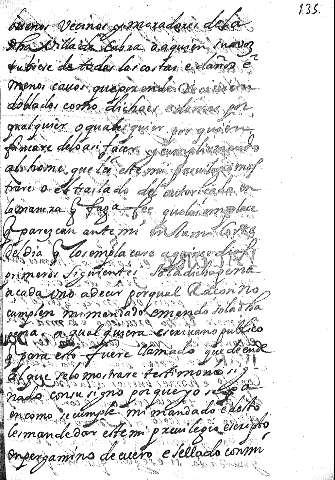 135.
buenos Vecinos y moradores de la
dha Villa de Cabra o a quien su voz
tubiere de todas las costas e daños e
menos cauos que por ende Reciuieren
doblados como dicho es e demas por
qualquier o quales quier por quien
fincare de lo asi façer y cumplir mando
al home que les este mi preuilegio mos
trare o el traslado del autoriçado en
la manera q faga fee que los emplace
q parescan ante mi en la mi corte
del dia q los emplaçare a quinçe dias
primeros siguientes so la dicha pena
a cada uno a decir por qual Raçon no
cumplen mi mandado e mando so la dha
pena a qual quiera escriuano publico
q para esto fuere llamado que dé ende
al que se lo mostrare testimonio sig
nado con su signo por que yo sepa
en como se cumple mi mandado e desto
les mande dar este mi preuilegio escripto
en pergamino de cuero e sellado con mi